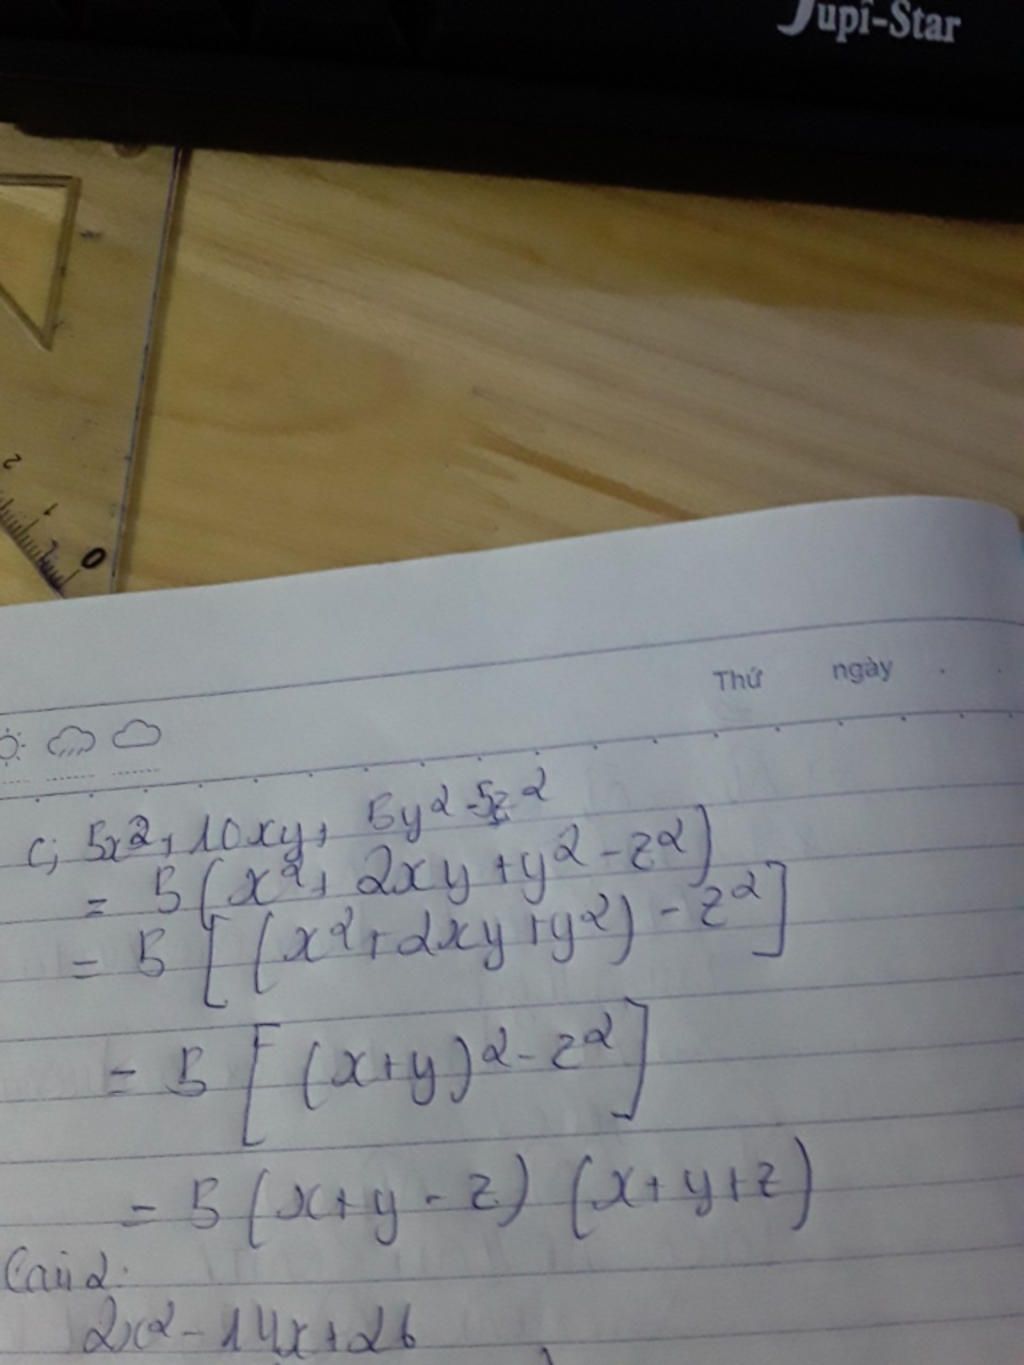 Jupi-Star
2
1
0
Thứ ngày
C; 5x²+10xy+ 5y²-5z²
= 5(x²+ 2xy+y²-z²)
= 5[(x²+2xy+y²)-z²]
= 5[(x+y)²-z²]
= 5(x+y-z) (x+y+z)
Câu 2:
2x²-14x+26